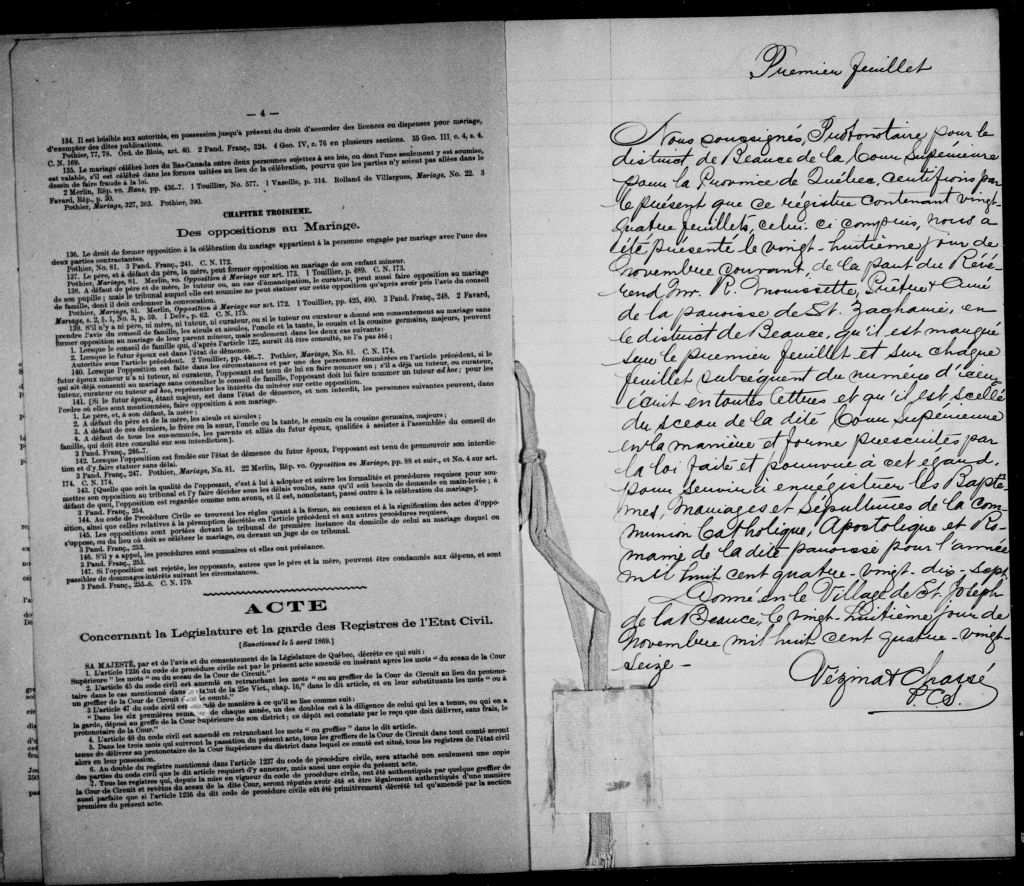 — 4 —
134. Il est loisible aux autorités, en possession jusqu'à présent du droit d'accorder des licences ou dispenses pour mariage,
d'exempter des dites publications.
Pothier, 77, 78. Ord. de Blois, art. 40. 2 Pand. Franç., 324. 4 Geo. IV, c. 76 en plusieurs sections. 35 Geo. III, c. 4, s. 4.
C. N. 169.
135. Le mariage célébré hors du Bas-Canada entre deux personnes sujettes à ses lois, ou dont l'une seulement y est soumise,
est valable, s'il est célébré dans les formes usitées au lieu de la célébration, pourvu que les parties n'y soient pas allées dans le
dessin de faire fraude à la loi.
2 Merlin, Rép. vo. Bans, pp. 436-7. 1 Touillier, No. 577. 1 Vazeille, p. 314. Rolland de Villargues, Mariage, No. 22. 3
Favard, Rép., p. 30.
Pothier, Mariage, 327, 363. Pothier, 390.
CHAPITRE TROISIEME.
Des oppositions au Mariage.
136. Le droit de former opposition à la célébration du mariage appartient à la personne engagée par mariage avec l'une des
deux parties contractantes.
Pothier, No. 81. 3 Pand. Franç., 241. C. N. 172.
137. Le père, et à défaut du père, la mère, peut former opposition au mariage de son enfant mineur.
Pothier, Mariage, 81. Merlin, vo. Opposition à Mariage sur art. 173. 1 Touillier, p. 489. C. N. 173.
138. A défaut de père et de mère, le tuteur ou, au cas d'émancipation, le curateur, peut aussi faire opposition au mariage
de son pupille; mais le tribunal auquel elle est soumise ne peut statuer sur cette opposition qu'après avoir pris l'avis du conseil
de famille, dont il doit ordonner la convocation.
Pothier, Mariage, 81. Merlin, Opposition à Mariage sur art. 172. 1 Touillier, pp. 425, 490. 3 Pand. Franç., 248. 2 Favard,
Mariage, s. 2, § 1, No. 3, p. 59. 1 Delv., p. 62. C. N. 175.
139. S'il n'y a ni père, ni mère, ni tuteur, ni curateur, ou si le tuteur ou curateur a donné son consentement au mariage sans
prendre l'avis du conseil de famille, les aïeuls et aïeules, l'oncle et la tante, le cousin et la cousine germains, majeurs, peuvent
former opposition au mariage de leur parent mineur, mais seulement dans les deux cas suivants:
1. Lorsque le conseil de famille qui, d'après l'article 122, aurait dû être consulté, ne l'a pas été;
2. Lorsque le futur époux est dans l'état de démence.
Autorités sous l'article précédent. 2 Touillier, pp. 446-7. Pothier, Mariage, No. 81. C. N. 174.
140. Lorsque l'opposition est faite dans les circonstances et par une des personnes énumérées en l'article précédent, si le
futur époux mineur n'a ni tuteur, ni curateur, l'opposant est tenu de lui en faire nommer un; s'il a déjà un tuteur, ou curateur,
qui ait déjà consenti au mariage sans consulter le conseil de famille, l'opposant doit lui faire nommer un tuteur ad hoc; pour les
tuteur, curateur ou tuteur ad hoc, représenter les intérêts du mineur sur cette opposition.
141. [Si le futur époux, étant majeur, est dans l'état de démence, et non interdit, les personnes suivantes peuvent, dans
l'ordre où elles sont mentionnées, faire opposition à son mariage.
1. Le père, et, à son défaut, la mère;
2. A défaut du père et de la mère, les aïeuls et aïeules;
3. A défaut de ces derniers, le frère ou la sœur, l'oncle ou la tante, le cousin ou la cousine germains, majeurs;
4. A défaut de tous les sus-nommés, les parents et alliés du futur époux, qualifiés à assister à l'assemblée du conseil de
famille, qui doit être consulté sur son interdiction].
3 Pand. Franç., 246-7.
142. Lorsque l'opposition est fondée sur l'état de démence du futur époux, l'opposant est tenu de promouvoir son interdic-
tion et d'y faire statuer sans délai.
3 Pand. Franç., 247. Pothier, Mariage, No. 81. 22 Merlin, Rép. vo. Opposition au Mariage, pp. 88 et suiv., et No. 4 sur art.
174. C. N. 174.
143. [Quelle que soit la qualité de l'opposant, c'est à lui à adopter et suivre les formalités et procédures requises pour sou-
mettre son opposition au tribunal et l'y faire décider sous les délais voulus, sans qu'il soit besoin de demande en main-levée; à
défaut de quoi, l'opposition est regardée comme non avenu, et il est, nonobstant, passé outre à la célébration du mariage].
3 Pand. Franç., 254.
144. Au code de Procédure Civile se trouvent les règles quant à la forme, au contenu et à la signification des actes d'oppo-
sition, ainsi que celles relatives à la péremption décrétée en l'article précédent et aux autres procédures requises.
145. Les oppositions sont portées devant le tribunal de première instance du domicile de celui au mariage duquel on
s'oppose, ou du lieu où doit se célébrer le mariage, ou devant un juge de ce tribunal.
3 Pand. Franç., 253.
146. S'il y a appel, les procédures sont sommaires et elles ont préséance.
3 Pand. Franç., 253.
147. Si l'opposition est rejetée, les opposants, autres que le père et la mère, peuvent être condamnés aux dépens, et sont
passibles de dommages-intérêts suivant les circonstances.
3 Pand. Franç., 255-6. C. N. 179.
ACTE
Concernant la Législature et la garde des Registres de l'Etat Civil.
[Sanctionné le 5 avril 1869.]
SA MAJESTÉ, par et de l'avis et du consentement de la Législature de Québec, décrète ce qui suit:
1. L'article 1236 du code de procédure civile est par le présent acte amendé en insérant après les mots "du sceau de la Cour
Supérieure" les mots "ou du sceau de la Cour de Circuit."
2. L'article 45 du code civil est amendé en retranchant les mots "ou au greffier de la Cour de Circuit au lieu du protono-
taire dans le cas mentionné dans statut de la 25e Vict., chap. 16," dans le dit article, et en leur substituants les mots "ou à
un greffier de la Cour de Circuit le comté."
3 L'article 47 du code civil est amendé de manière à ce qu'il se lise comme suit:
"Dans les six premières de chaque année, un des doubles est à la diligence de celui qui les a tenus, ou qui en a
la garde, déposé au greffe de la Cour Supérieure de son district; ce dépôt est constaté par le reçu que doit délivrer, sans frais, le
protonotaire de la Cour."
4. L'article 48 du code civil est amendé en retranchant les mots "ou greffier" dans le dit article.
5. Dans les trois mois qui suivront la passation du présent acte, tous les greffiers de la Cour de Circuit dans tout comté seront
tenus de délivrer au protonotaire de la Cour Supérieure du district dans lequel ce comté est situé, tous les registres de l'état civil
alors en leur possession.
6. Au double du registre mentionné dans l'article 1237 du code de procédure civile, sera attaché non seulement une copie
des parties du code civil que le dit article requiert d'y annexer, mais aussi une copie du présent acte.
7. Tous les registres qui, depuis la mise en vigueur du code de procédure civile, ont été authentiqués par quelque greffier de
la Cour de Circuit et revêtus du sceau de la dite Cour, seront réputés avoir été et être légalement authentiqués d'une manière
aussi parfaite que si l'article 1236 du dit code de procédure civile eût été primitivement décrété tel qu'amendé par la section
première du présent acte.
Premier feuillet
Nous soussignés, Protonotaire pour le
district de Beauce de la Cour Supérieure
pour la Province de Québec, certifions par
le présent que ce registre contenant vingt-
quatre feuillets, celui-ci compris, nous a
été présenté le vingt-huitième jour de
novembre courant, de la part du Révé-
rend Mr. R. Mouissette, Prêtre & Curé
de la paroisse de St. Zacharie, en
le district de Beauce, qu'il est marqué
sur le premier feuillet et sur chaque
feuillet subséquent du numéro d'icelui
écrit en toutes lettres et qu'il est scellé
du sceau de la dite Cour Supérieure
en la manière et forme prescrites par
la loi faite et pourvue à cet égard,
pour servir à enregistrer les Baptê-
mes, Mariages et Sépultures de la com-
munion Catholique, Apostolique et Ro-
maine de la dite paroisse pour l'année
mil huit cent quatre-vingt-dix-sept.
Donné en le Village de St. Joseph
de la Beauce, le vingt-huitième jour de
Novembre mil huit cent quatre-vingt-
seize -
Vézina & Chassé
P.C.S.